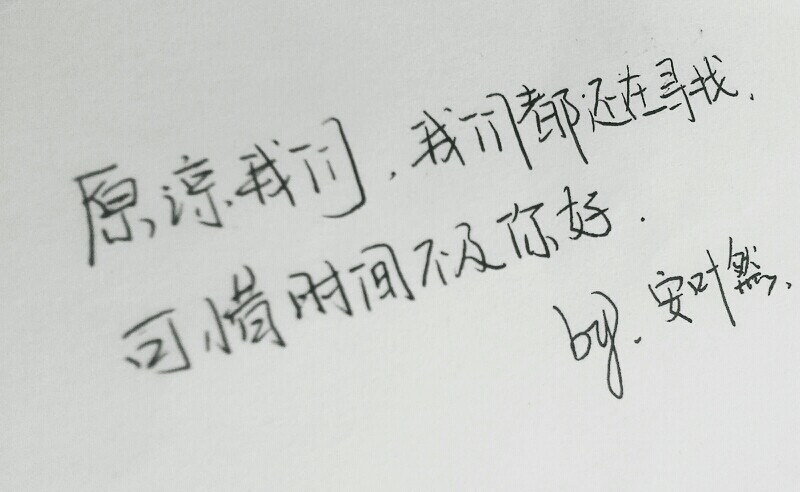 原谅我们,我们都还在寻找.
可惜时间不及你好.
by.安叶然.